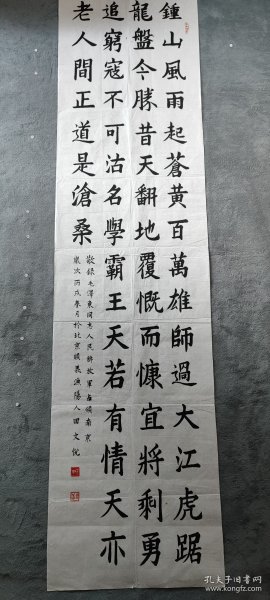 鍾山風雨起蒼黃百萬雄師過大江虎踞
龍盤今勝昔天翻地覆慨而慷宜將剩勇
追窮寇不可沽名學霸王天若有情天亦
老人間正道是滄桑
敬錄毛澤東同志人民解放軍占領南京
歲次丙戌春月於北京順義漁陽人田文悅
孔夫子旧书网